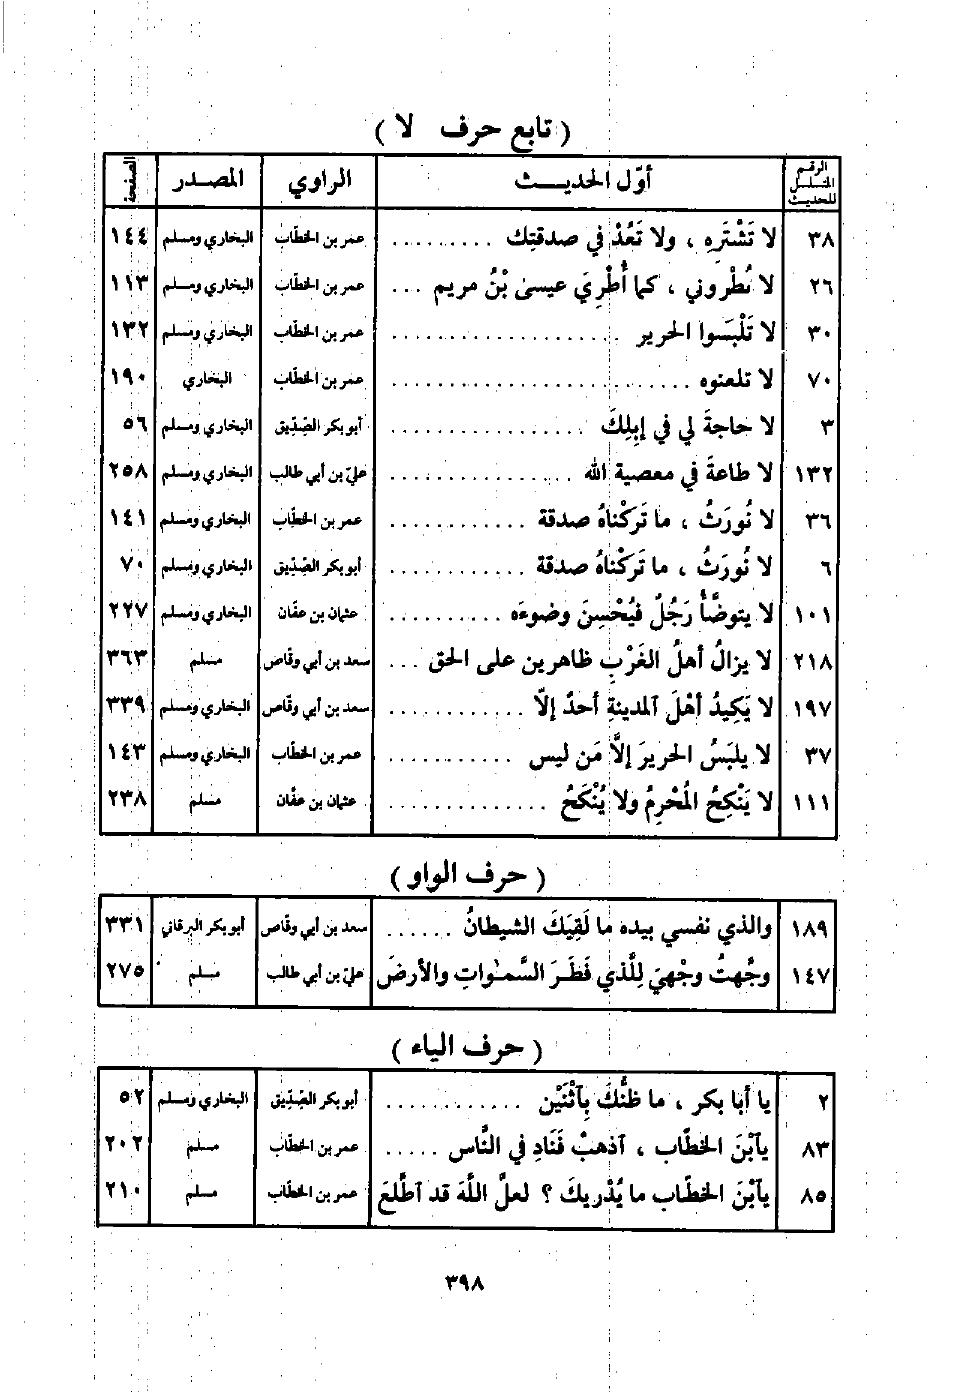 ( تابع حرف لا )
الرقم المسلسل للحديث | أوّل الحديث | الراوي | المصدر | الصفحة
٣٨ | لا تَشْتَرِهِ ، ولا تَعُدْ في صدقتِك ......... | عمر بن الخطّاب | البخاري ومسلم | ١٤٤
٢٦ | لا تُطْروني ، كما أُطْرِيَ عيسىٰ بْنُ مريم ... | عمر بن الخطّاب | البخاري ومسلم | ١١٣
٣٠ | لا تَلْبَسوا الحرير .................... | عمر بن الخطّاب | البخاري ومسلم | ١٣٢
٧٠ | لا تلعنوه .......................... | عمر بن الخطّاب | البخاري | ١٩٠
٣ | لا حاجةَ لي في إبِلِكَ ................. | أبو بكر الصّدّيق | البخاري ومسلم | ٥٦
١٣٢ | لا طاعةَ في معصية الله ................ | عليّ بن أبي طالب | البخاري ومسلم | ٢٥٨
٣٦ | لا نُورَثُ ، ما تَرَكْناهُ صدقة ............ | عمر بن الخطّاب | البخاري ومسلم | ١٤١
٦ | لا نُورَثُ ، ما تَرَكْناهُ صدقة ............ | أبو بكر الصّدّيق | البخاري ومسلم | ٧٠
١٠١ | لا يتوضَّأُ رَجُلٌ فيُحْسِنَ وضوءَه .......... | عثمان بن عفّان | البخاري ومسلم | ٢٢٧
٢١٨ | لا يزالُ أهلُ الغَرْبِ ظاهرين على الحق ... | سعد بن أبي وقّاص | مسلم | ٣٦٣
١٩٧ | لا يَكِيدُ أهْلَ ٱلمدينةِ أحدٌ إلّا ............ | سعد بن أبي وقّاص | البخاري ومسلم | ٣٣٩
٣٧ | لا يلبَسُ الحريرَ إلاَّ مَن ليس ........... | عمر بن الخطّاب | البخاري ومسلم | ١٤٣
١١١ | لا يَنْكِحُ المُحْرِمُ ولا يُنْكَحُ .............. | عثمان بن عفّان | مسلم | ٢٣٨
( حرف الواو )
١٨٩ | والذي نفسي بيده ما لَقِيَكَ الشيطانُ ...... | سعد بن أبي وقّاص | أبو بكر البرقاني | ٣٣١
١٤٧ | وجَّهتُ وجْهيَ لِلَّذي فَطَرَ السَّمٰواتِ والأرضَ | عليّ بن أبي طالب | مسلم | ٢٧٥
( حرف الياء )
٢ | يا أبا بكر ، ما ظنُّكَ بِٱثْنَيْن ............ | أبو بكر الصّدّيق | البخاري ومسلم | ٥٢
٨٣ | يٱبْنَ الخطّاب ، ٱذهبْ فَنَادِ في النَّاس ..... | عمر بن الخطّاب | مسلم | ٢٠٢
٨٥ | يٱبْنَ الخطّاب ما يُدْريكَ ؟ لعلَّ اللَّهَ قد ٱطَّلعَ | عمر بن الخطّاب | مسلم | ٢١٠
٣٩٨